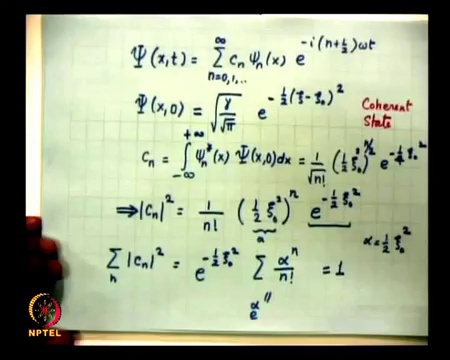 Ψ(x,t) = ∑_{n=0,1,..}^{∞} c_n ψ_n(x) e^{-i(n+½)ωt}
Ψ(x,0) = √(γ/√π) e^{-½(ξ-ξ₀)²}
Coherent
State
c_n = ∫_{-∞}^{+∞} ψ_n^*(x) Ψ(x,0)dx = 1/√n! (½ξ₀²)^{n/2} e^{-¼ξ₀²}
⇒ |c_n|² = 1/n! (½ξ₀²)^n e^{-½ξ₀²}
α
α = ½ξ₀²
∑_n |c_n|² = e^{-½ξ₀²} ∑ α^n/n! = 1
e^α
NPTEL